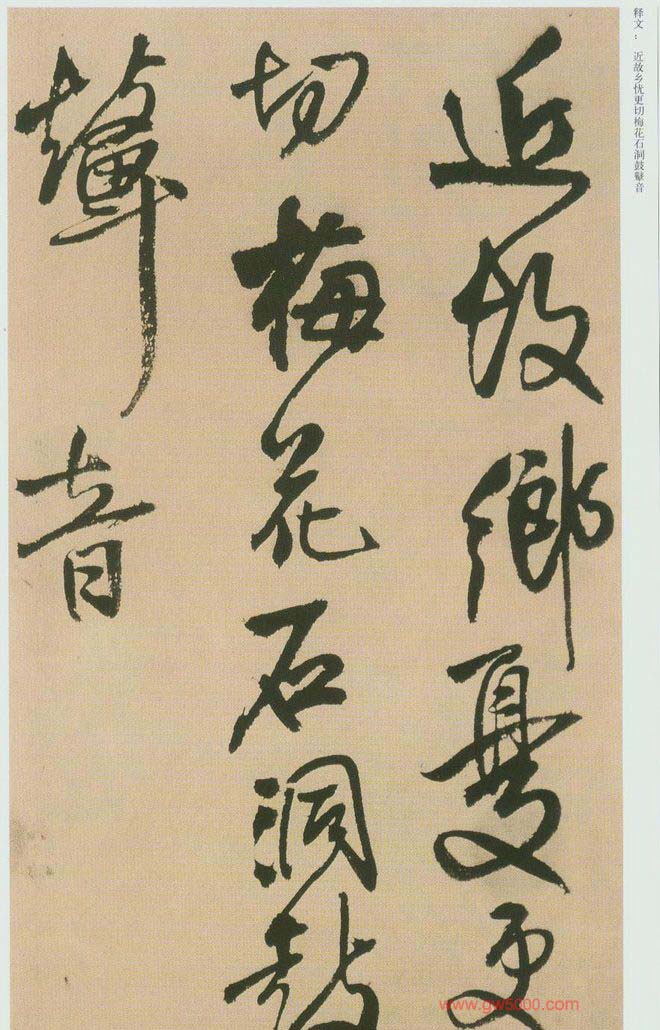 释文： 近故乡忧更切梅花石洞鼓鼙音
近故鄉憂更
切梅花石洞鼓
鼙音
www.gw5000.com